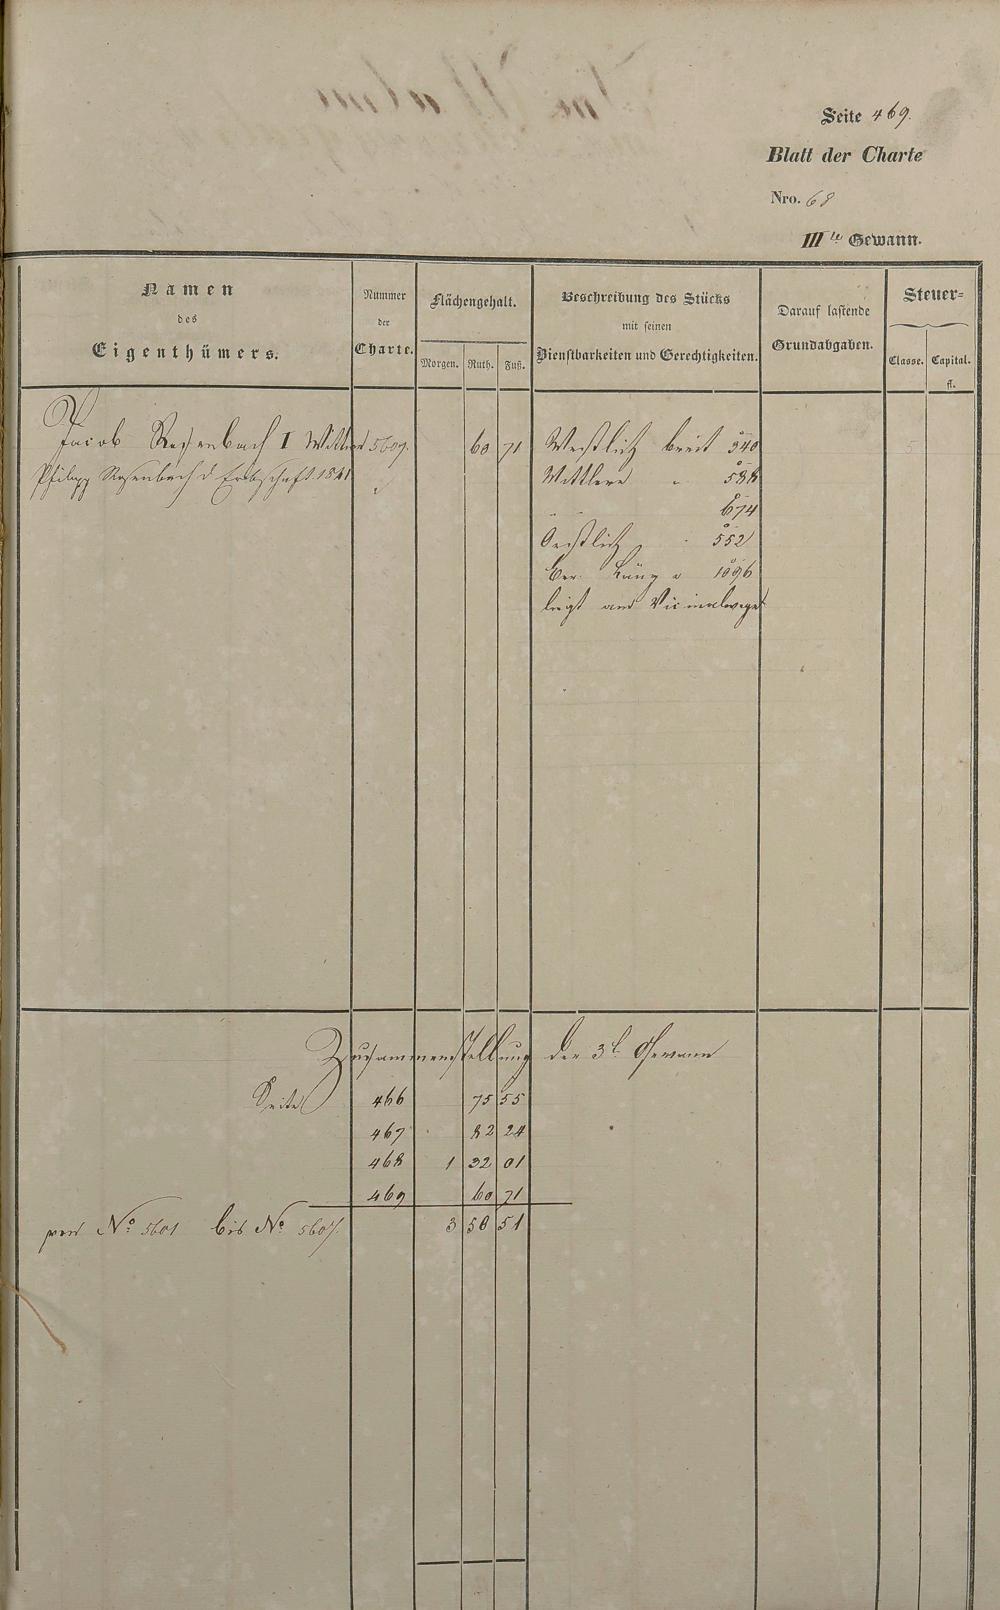 Seite 469.
Blatt der Charte
Nro. 68
III te Gewann.
Namen
des
Eigenthümers.
Nummer
der
Charte.
Flächengehalt.
Morgen. Ruth. Fuß.
Beschreibung des Stücks
mit seinen
Dienstbarkeiten und Gerechtigkeiten.
Darauf lastende
Grundabgaben.
Steuer-
Classe. Capital.
fl.
Jacob Rosenbach I Wittwe 5607. 60 71 Westlich breit 540
Philipp Rosenbach d Erbschaft 1841 Mittlere " 588
" 674
Oestlich " 552
Länge 1096
liegt am Vicinalwege
Zusammenstellung der 3t Gewann
Seite 466 75 55
467 82 24
468 1 32 01
469 60 71
von No 5601 bis No 5607. 3 50 51